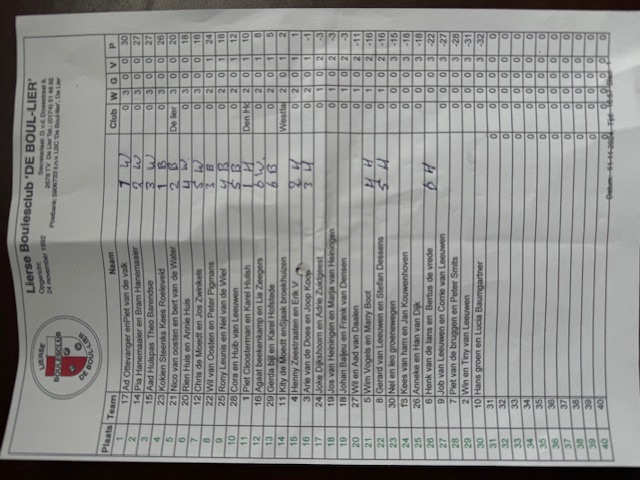 LIERSE
BOULESCLUB
DE BOUL-LIER
Lierse Boulesclub 'DE BOUL-LIER'
Opgericht:
24 november 1992
Secretariaat: D. v.d. Doesstraat 9,
2678 TV De Lier Tel.: (0174) 51 46 92
Postbank: 5906733 t.n.v. LBC 'De Boul-lier', De Lier
Plaats Team Naam Club W G V P
1 17 Ad Ottevanger enPiet van de valk 1 W 0 3 0 0 30
2 14 Pia Hanemaaier en Bram Hanemaaier 2 W 0 3 0 0 27
3 15 Aad Hulspas Theo Barendse 3 W 0 3 0 0 27
4 23 Kokien Steenks Kees Roeleveld 1 B 0 3 0 0 26
5 21 Nico van oosten en bert van de Water 2 B De lier 3 0 0 20
6 20 Rien Huis en Annie Huis 4 W 0 3 0 0 18
7 12 Chris de Moedt en Jos Zwinkels 5 W 0 3 0 0 16
8 22 Wil van Oosten en Peter Pigmans 3 B 0 2 0 1 24
9 25 Rony Leunis en Nel van de Wiel 4 B 0 2 0 1 18
10 28 Cora en Huib van Leeuwen 5 B 0 2 0 1 12
11 1 Piet Cloosterman en Karel Hulish 1 H Den Ho 2 0 1 10
12 16 Agaat beekenkamp en Lia Zeegers 6 W. 0 2 0 1 8
13 29 Gerda bijl en Karel Hofstede 6 B 0 2 0 1 5
14 11 Kity de Moedt enSjaak broekhuizen Westla 2 0 1 2
15 4 Henny Zeestraaten en Erik V 2 H 0 2 0 1 1
16 3 Arie van de Does en Joop Koop 3 H 0 2 0 1 -1
17 24 Joke Dijkshoorn en Adrie Zuidgeest 0 1 0 2 -3
18 19 Jos van Heiningen en Marja van Heiningen 0 1 0 2 -3
19 18 Johan Baljeu en Frank van Densen 0 1 0 2 -3
20 27 Wil en Aad van Daalen 0 1 0 2 -11
21 5 Wim Vogels en Marry Boot 4 H 0 1 0 2 -16
22 8 Gerard van Leeuwen en Stefan Dessens 5 H 0 1 0 2 -16
23 30 Nel en leo groenewegen 0 0 0 3 -15
24 13 Kees van ham en Jan Kouwenhoven 0 0 0 3 -18
25 26 Anneke en Han van Dijk 0 0 0 3 -18
26 6 Henk van de lans en Bertus de vrede 6 H 0 0 3 -22
27 9 Job van Leeuwen en Corrie van Leeuwen 0 0 0 3 -27
28 7 Piet van de bruggen en Peter Smits 0 0 0 3 -28
29 2 Win en Tiny van Leeuwen 0 0 0 3 -31
30 10 Hans groen en Lucia Baumgartner 0 0 0 3 -32
31 31 0 0 0 0 0
32 32 0 0 0 0 0
33 33 0 0 0 0 0
34 34 0 0 0 0 0
35 35 0 0 0 0 0
36 36 0 0 0 0 0
37 37 0 0 0 0 0
38 38 0 0 0 0 0
39 39 0 0 0 0 0
40 40 0 0 0 0 0
Datum: 11-11-2024, Tijd: